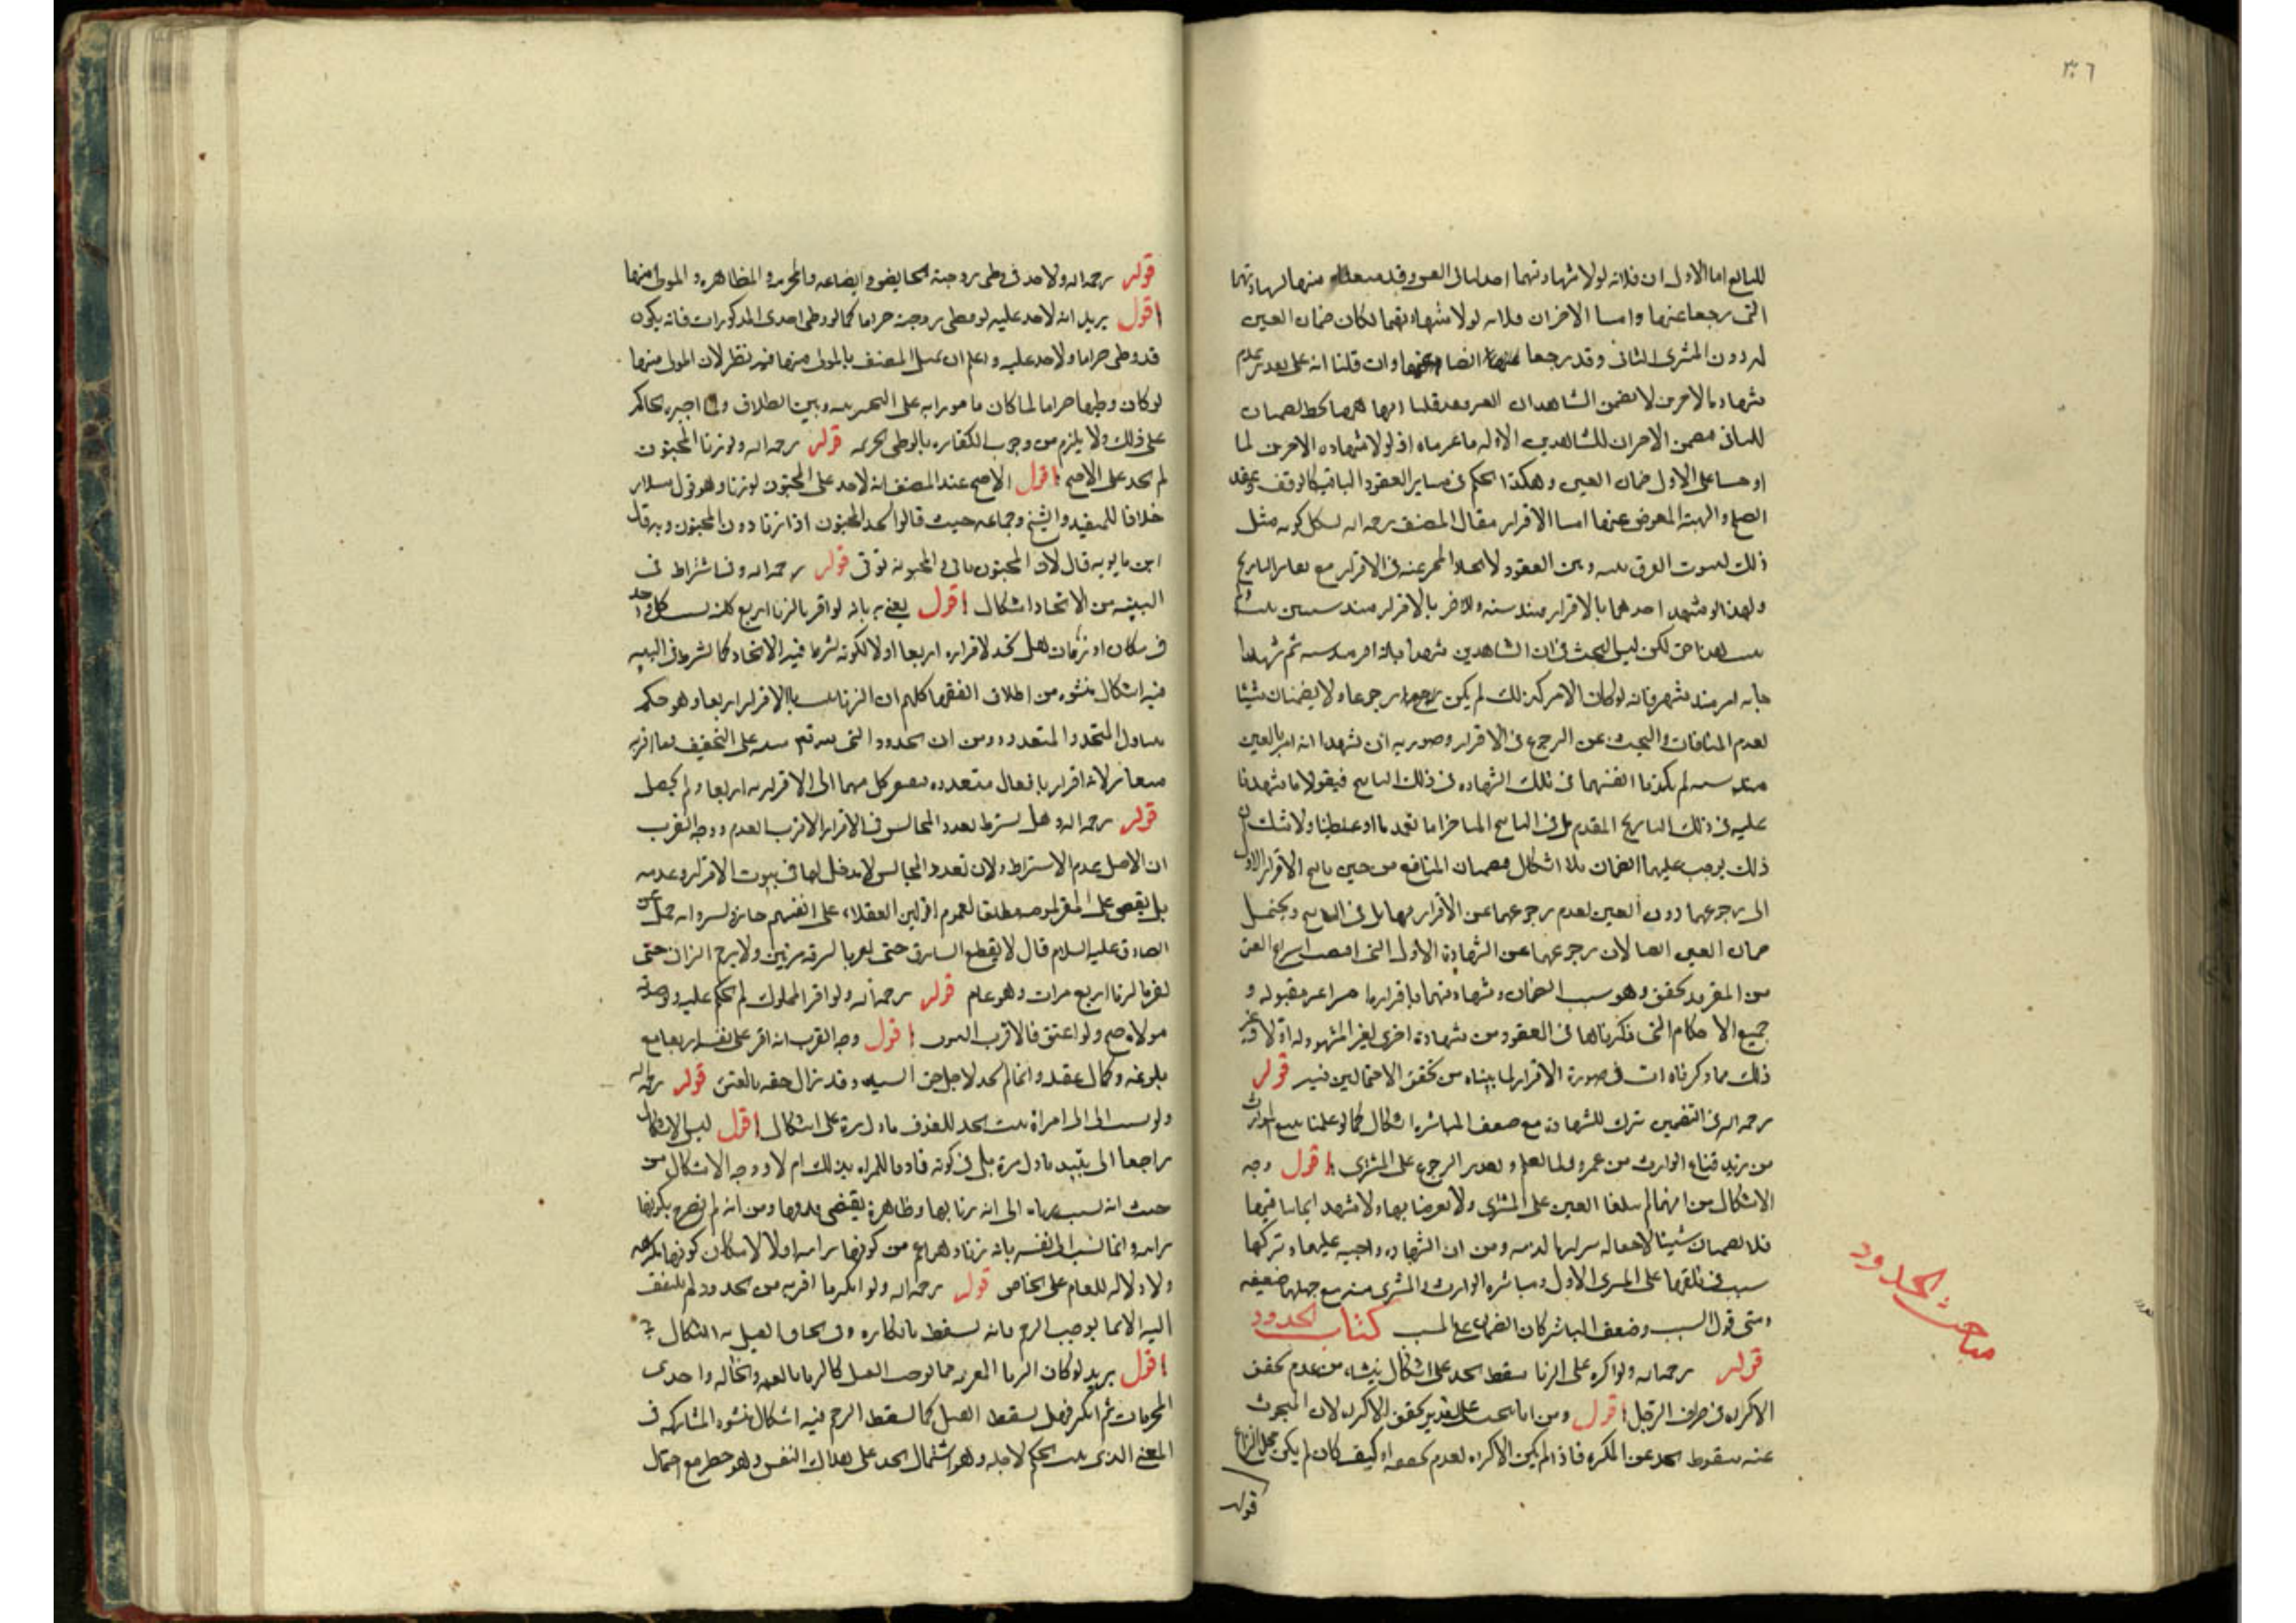 ٣٠٦
للبائع اما الاول ان فلانه لولا شهادتهما
التى رجعا عنها واما الاخران فلانه لولا شهادتهما لكان ضمان العين
له دون المشترى الثانى وقد رجعا وان قلنا انه على تقدير عدم
شهادة الاخرين لا يضمن الشاهدان
للثانى الاخران للشاهدين الاوله ما غرماه اذ لولا شهاده الاخرين لما
اوجبنا على الاول ضمان العين وهكذا الحكم فى ساير العقود الباقية كالوقف وعقد
الصلح والهبة المعوض عنها اما الاقرار فقال المصنف رحمه الله يشكل كونه مثل
ذلك لثبوت الفرق بينه وبين العقود لاتحاد المخبر عنه فى الاقرار مع تغاير التاريخ
ولهذا لو شهد احدهما بالاقرار منذ سنه والاخر بالاقرار منذ سنتين
لكن ليس البحث فى ان الشاهدين شهدا بانه اقر منذ سنه ثم شهدا
بانه اقر منذ شهر فانه لو كان الامر كذلك لم يكن رجوعا ولا يضمنان شيئا
لعدم المنافات والبحث عن الرجوع فى الاقرار وصورته ان شهدا انه اقر بالعين
منذ سنه ثم يكذبا انفسهما فى تلك الشهاده فى ذلك التاريخ فيقولا ما شهدنا
عليه فى ذلك التاريخ المقدم بل فى التاريخ المتاخر اما تعمدنا او غلطنا ولا شك ان
ذلك يوجب عليهما الضمان بلا اشكال فيضمنان المنافع من حين تاريخ الاقرار الاول
الى رجوعهما دون العين لعدم رجوعهما عن الاقرار بها بل فى التاريخ ويحتمل
ضمان العين ايضا لان رجوعهما عن الشهادة الاولى التى اقتضت انتزاع العين
من المقر قد تحقق وهو سبب الضمان وشهادتهما باقراره غير مقبوله و
جميع الاحكام التى ذكرناها فى العقود من شهادة اخرى لغير المشهود له اولا وغير
ذلك مما ذكرناه ات فى صورة الاقرار لما بيناه من تحقق الاحتمالين فيه قوله
رحمه الله فى التضمين بترك الشهادة مع ضعف المباشره اشكال كما لو علما ببيع المورث
من زيد فباع الوارث من عمرو ولما يعلم وتعذر الرجوع على المشترى اقول وجه
الاشكال من انهما لم يتلفا العين على المشترى ولا تعرضا بها ولا شهدا
فلا يضمنان شيئا لاصاله براءة الذمه ومن ان الشهاده واجبه عليهما وتركها
سبب فى تلفها على المشترى الاول ومباشره الوارث والمشترى منه مع جهلهما ضعيفه
ومتى قوى السبب وضعف المباشر كان الضمان على المسبب كتاب الحدود
قوله رحمه الله ولو اكره على الزنا سقط الحد على اشكال ينشاء من عدم تحقق
الاكراه فى طرف الرجل اقول ومن انا نبحث على تقدير تحقق الاكراه لان المبحوث
عنه سقوط الحد عن المكره فاذا لم يكن الاكراه لعدم تحققه او كيف كان لم يكن محل النزاع
قوله
مباحث الحدود
قوله رحمه الله ولا حد فى وطى زوجته الحايض والصائمه والمحرمه والمظاهره والمولى منها
اقول يريد انه لا حد عليه لو وطى زوجته حراما كما لو وطى احدى المذكورات فانه يكون
قد وطى حراما ولا حد عليه واعلم ان تمثيل المصنف بالمولى منها فيه نظر لان المولى منها
لو كان وطيها حراما لما كان مامورا به على التخيير بينه وبين الطلاق ولما اجبره الحاكم
على ذلك ولا يلزم من وجوب الكفاره بالوطى تحريمه قوله رحمه الله ولو زنا المجنون
لم يحد على الاصح اقول الاصح عند المصنف انه لا حد على المجنون لو زنا وهو قول سلار
خلافا للمفيد والشيخ وجماعه حيث قالوا يحد المجنون اذا زنا دون المجنونه وبه قال
ابن بابويه قال لان المجنون ياتى والمجنونه توتى قوله رحمه الله وفى اشتراط فى
البينه من الاتحاد اشكال اقول يعنى به بانه لو اقر بالزنا اربع كل واحد
فى مكان او زمان هل يحد لاقراره اربعا اولا لكونه يشترط فيه الاتحاد كما يشترط فى البينه
فيه اشكال ينشوء من اطلاق الفقها كلهم ان الزنا يثبت بالاقرار اربعا وهو حكم
يتناول المتحد والمتعدد ومن ان الحدود التى لله تعالى مبنيه على التخفيف فما اقر به
متغاير لانه اقرار بافعال متعدده فيفتقر كل منهما الى الاقرار به اربعا ولم يحصل
قوله رحمه الله وهل يشترط تعدد المجالس فى الاقرار الاقرب العدم ووجه القرب
ان الاصل عدم الاشتراط ولان تعدد المجالس لا مدخل لها فى ثبوت الاقرار وعدمه
بل يقضى على المقر مطلقا لعموم اقرار العقلاء على انفسهم جائز لروايه جميل عن
الصادق عليه السلام قال لا يقطع السارق حتى يقر بالسرقه مرتين ولا يرجم الزانى حتى
يقر بالزنا اربع مرات وهو عام قوله رحمه الله ولو اقر المملوك لم يحكم عليه ولو صدقه
مولاه صح ولو اعتق فالاقرب الثبوت اقول وجه القرب انه اقر على نفسه اربعا مع
بلوغه وكمال عقله وانما لم يحد لاجل حق السيد وقد زال حقه بالعتق قوله رحمه الله
ولو نسب الزنا الى امراة ثبت الحد للقذف باول مرة على اشكال اقول ليس الاشكال
راجعا الى تقييد باول مرة بل فى كونه قاذفا للمراه بذلك ام لا ووجه الاشكال من
حيث انه نسب زناه الى انه زنا بها وظاهره يقتضى قذفها ومن انه لم يصرح بكونها
زانيه وانما نسب الى نفسه بانه زنا وهو اعم من كونها زانيه اولا لامكان كونها مكرهه
ولا دلاله للعام على الخاص قوله رحمه الله ولو انكر ما اقر به من الحدود لم يلتفت
اليه الا بما يوجب الرجم فانه يسقط بانكاره وفى الحاق القتل به اشكال
اقول يريد لو كان الزنا المقر به مما يوجب القتل كالزنا بالعمه والخاله واحدى
المحرمات ثم انكر فهل يسقط القتل كما يسقط الرجم فيه اشكال ينشوء المشاركه فى
المعنى الذى ثبت الحكم لاجله وهو اشتمال الحد على اتلاف النفس وهو خطر مع احتمال